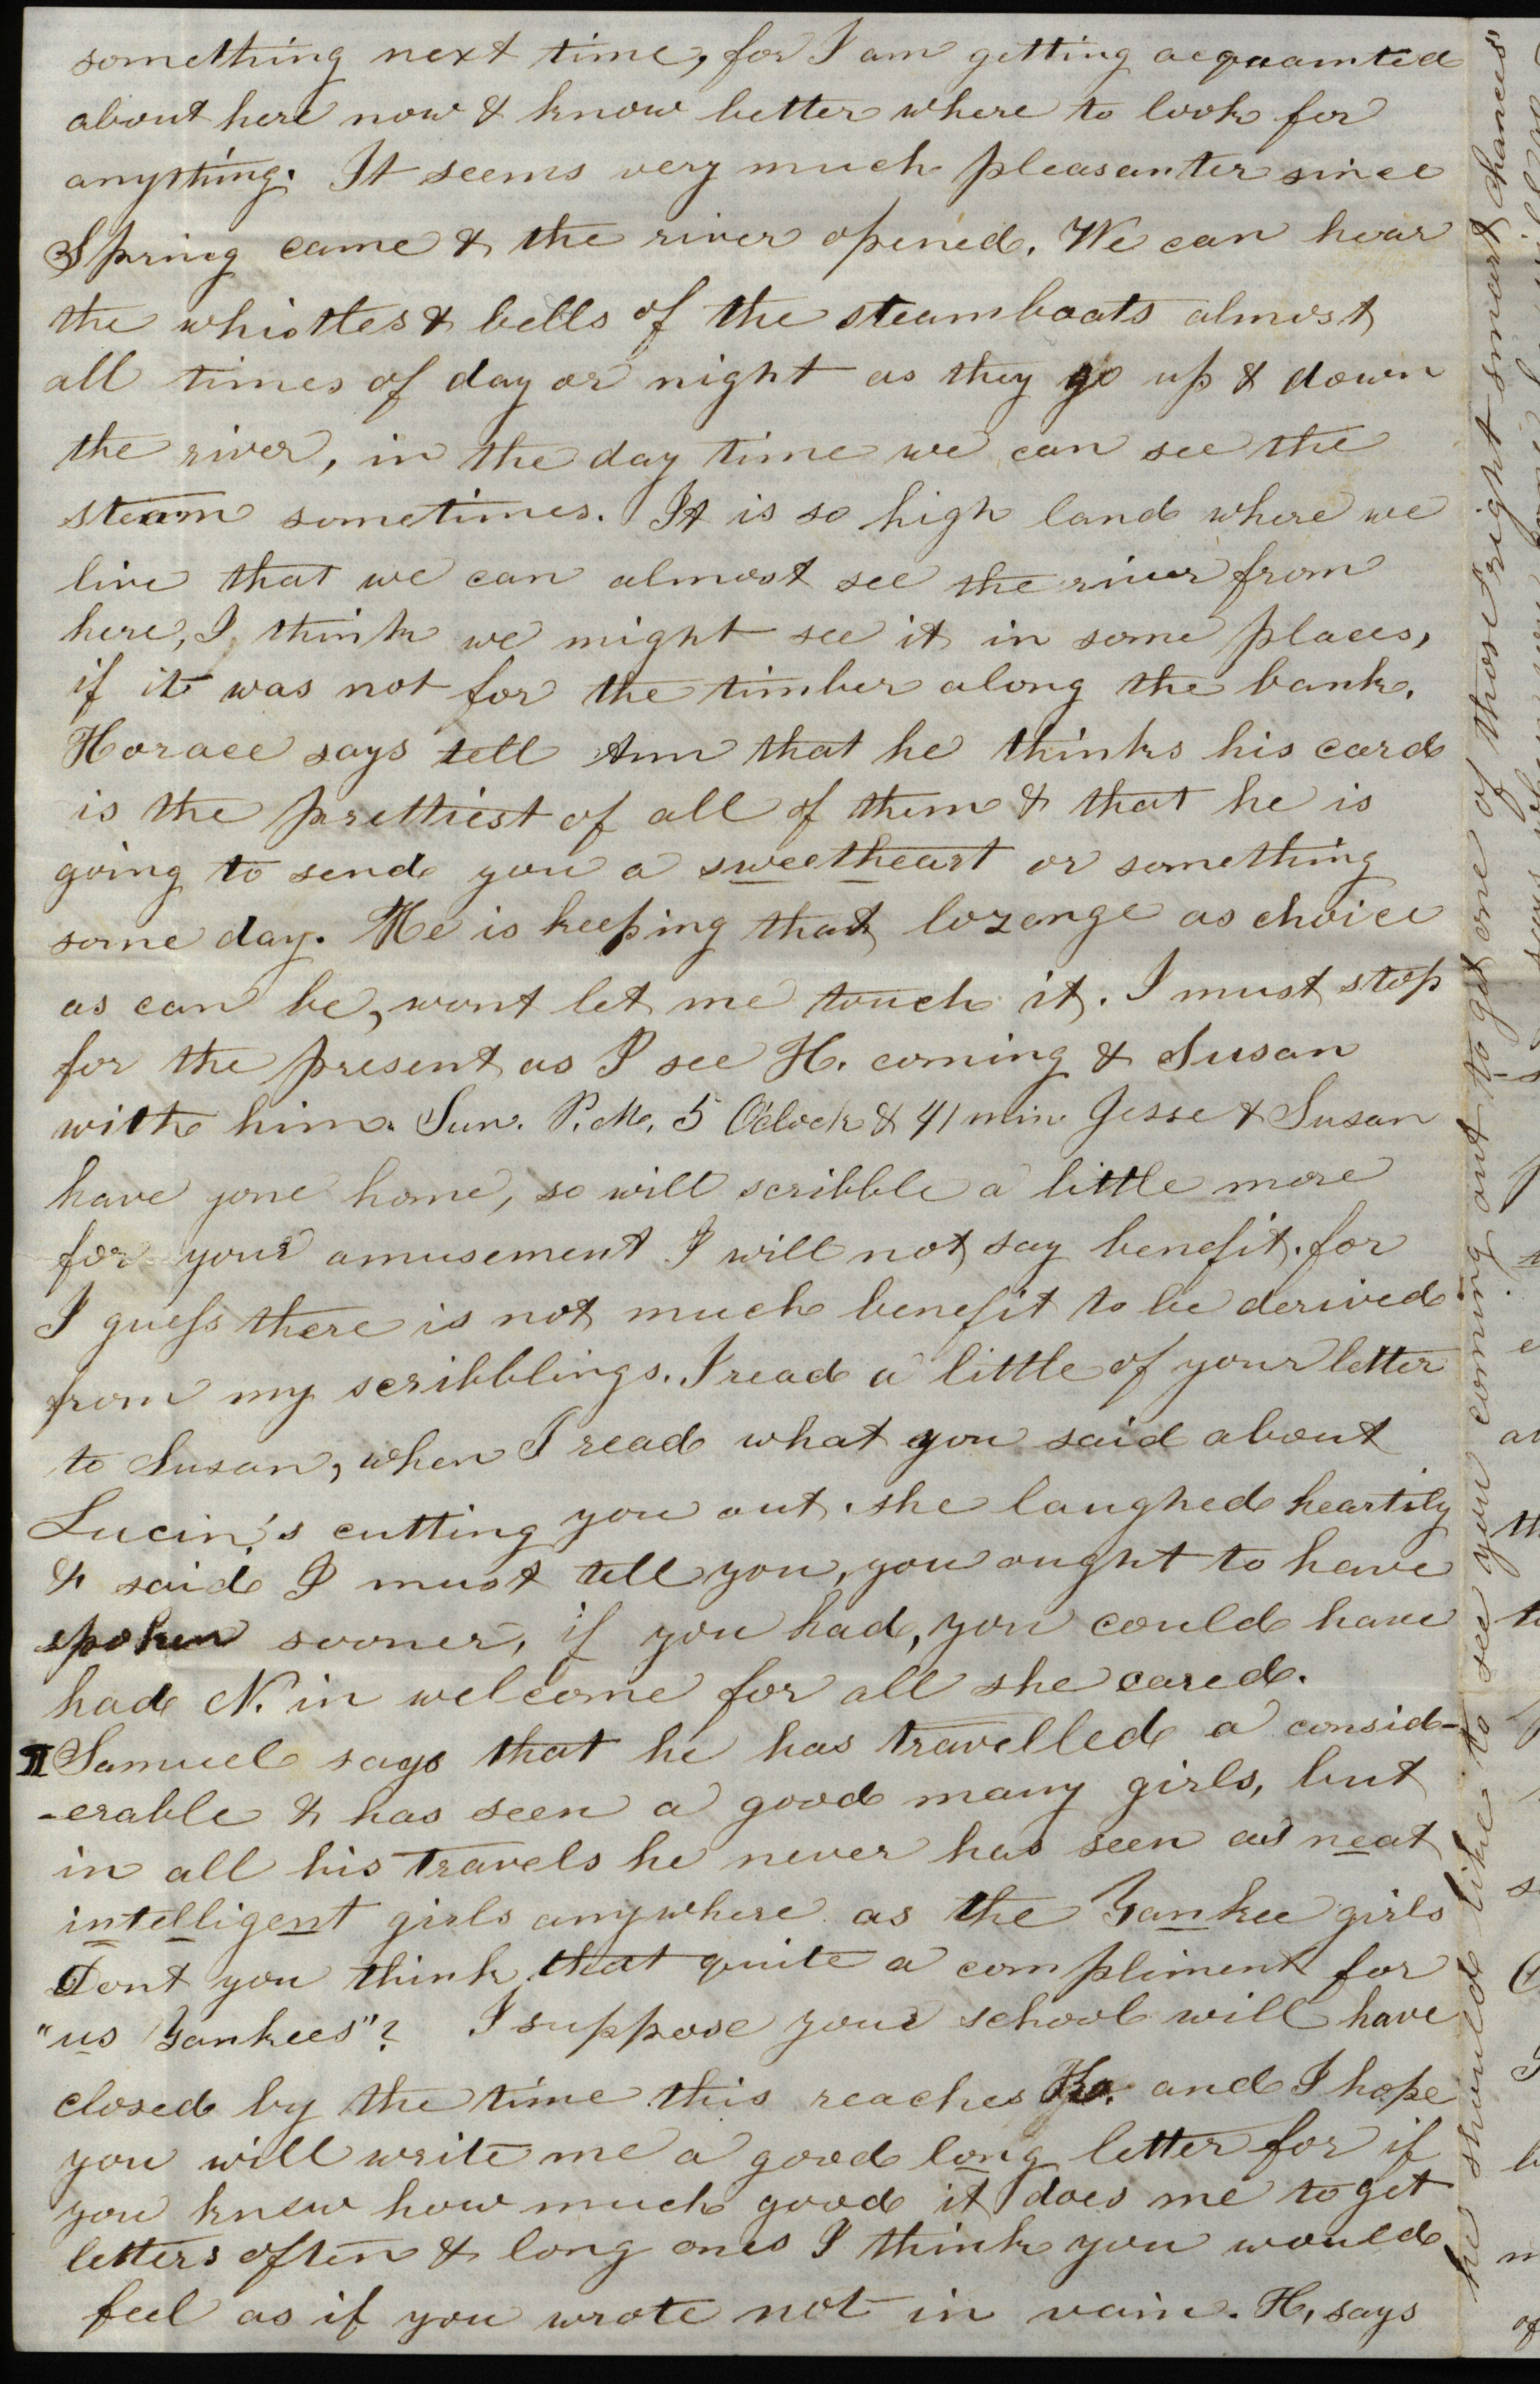 something next time, for I am getting acquainted
about here now & know better where to look for
anything. It seems very much pleasanter since
Spring came & the river opened. We can hear
the whistles & bells of the steamboats almost
all times of day or night as they go up & down
the river, in the day time we can see the
steam sometimes. It is so high land where we
live that we can almost see the river from
here, I think we might see it in some places,
if it was not for the timber along the bank.
Horace says tell Ann that he thinks his card
is the prettiest of all of them & that he is
going to send you a sweetheart or something
some day. He is keeping that lozenge as choice
as can be, wont let me touch it. I must stop
for the present as I see H. coming & Susan
with him. Sun. P.M. 5 Oclock & 41 min Jesse & Susan
have gone home, so will scribble a little more
for your amusement I will not say benefit. for
I guess there is not much benefit to be derived
from my scribblings. I read a little of your letter
to Susan, when I read what you said about
Lucin's cutting you out. she laughed heartily
& said I must tell you, you ought to have
spoken sooner, if you had, you could have
had N. in welcome for all she cared.
Samuel says that he has travelled a consid-
-erable & has seen a good many girls, but
in all his travels he never has seen as neat
intelligent girls anywhere as the Yankee girls
Dont you think that quite a compliment for
"us Yankees"? I suppose your school will have
closed by the time this reaches and I hope
you will write me a good long letter for if
you knew how much good it does me to get
letters often & long ones I think you would
feel as if you wrote not in vain. H, says
he should like to see you coming out to get one of those "right smart chances"